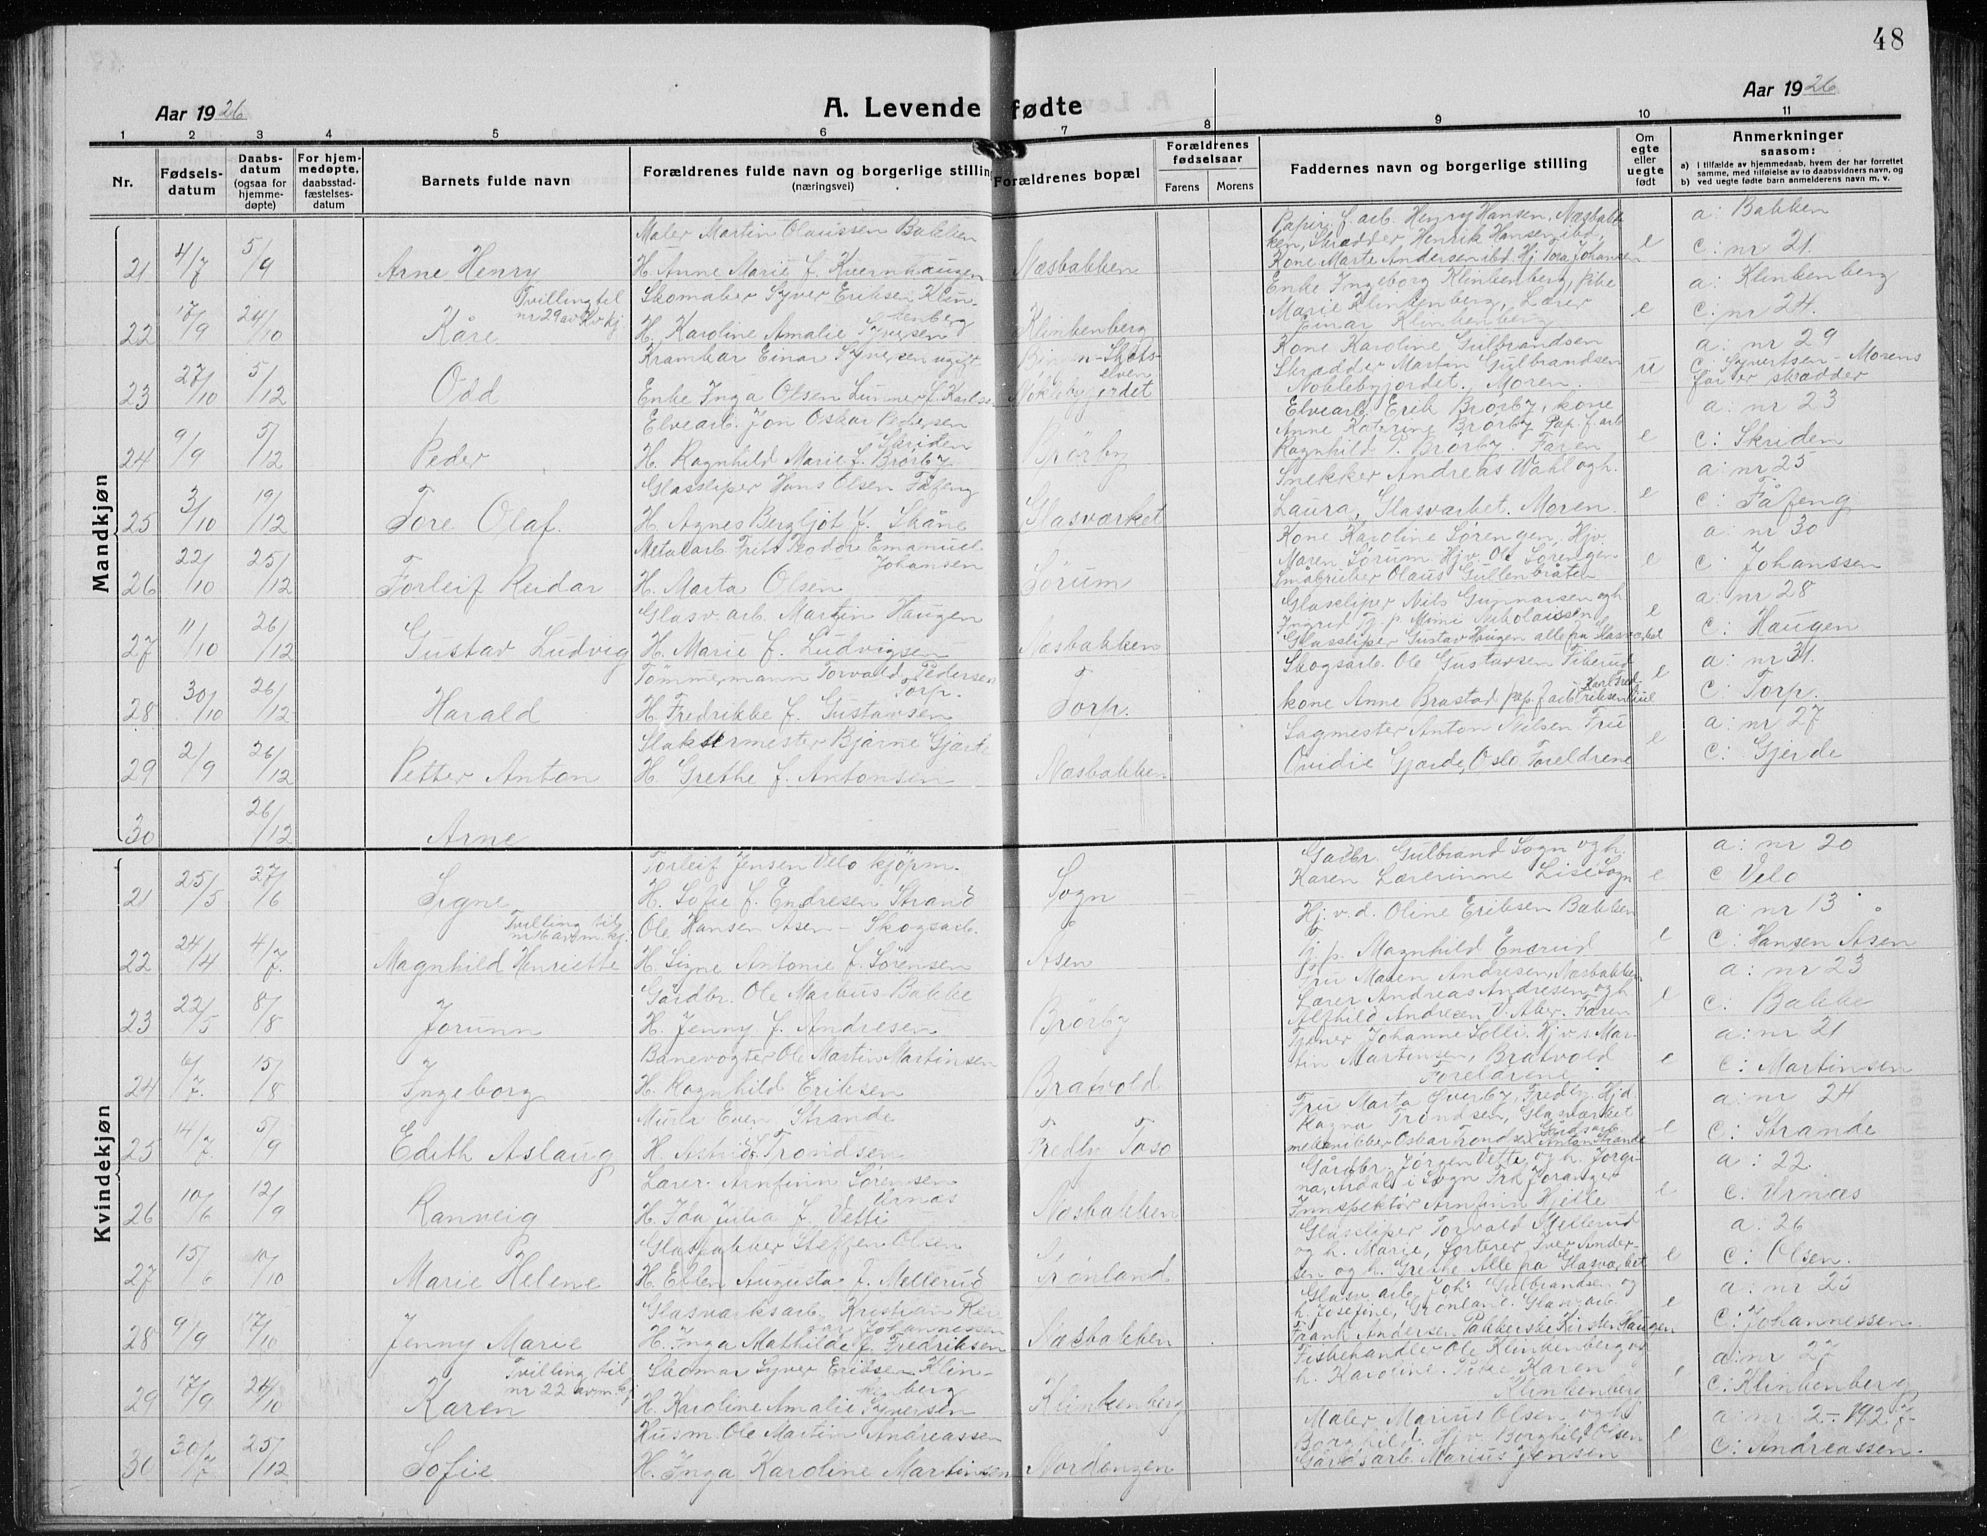 48
Aar 1926
A. Levende fødte
Aar 1926
1 2 3 4 5 6 7 8 9 10 11
Nr.
Fødselsdatum
Daabsdatum (ogsaa for hjemmedøpte)
For hjemmedøpte, daabsstadfæstelsesdatum
Barnets fulde navn
Forældrenes fulde navn og borgerlige stilling (næringsvei)
Forældrenes bopæl
Forældrenes fødselsaar
Farens
Morens
Faddernes navn og borgerlige stilling
Om egte eller uegte født
Anmerkninger saasom:
a) I tilfælde av hjemmedaab, hvem der har forrettet samme, med tilføielse av to daabsvidners navn, og
b) ved uegte fødte barn anmelderens navn m. v.
Mandkjøn
Maler Martin Olaussen Bakken
Papirf. arb. Henry Hansen, Næsbakken, Skrædder Henrik Hansen ibd,
a: Bakken
21 4/7 5/9 Arne Henry H. Anne Marie f. Kvernhaugen Næsbakken Kone Marte Andersen ibd. Hj. Tora Johansen e c: nr 21.
Tvilling til nr 29 av Kv kj
Skomaker Syver Eriksen Klinkenberg
Enke Ingeborg Klinkenberg, Pike Marie Klinkenberg, Lærer Einar Klinkenberg
a: Klinkenberg
22 17/9 24/10 Kåre H. Karoline Amalie Syversen Klinkenberg e c: nr 24.
Kramkar Einar Syversen ugift
Kone Karoline Gulbrandsen
a: nr 29
Skrædder Martin Gulbrandsen
23 27/10 5/12 Odd Enke Inga Olsen Lunner f. Karls Nøklebyjordet Noklebyjordet. Moren. u c: Syvertsen - Morens far er skrædder
Elvearb. Jon Oskar Pedersen Skriden
Elvearb. Erik Brørby, kone Anne Katerine Brørby Pap. f. arb
a: nr 23
24 9/9 5/12 Peder H. Ragnhild Marie f. Brørby Brørby Ragnhild P. Brørby. Faren e c: Skriden
Glassliper Hans Olsen Fåfeng
Snekker Andreas Wahl og h.
a: nr 25
25 3/10 19/12 Tore Olaf. H. Agnes Bergljot f. Skåne Glasværket Laura, Glasværket. Moren. e c: Fåfeng
Metalarb. Frits Teodor Emanuel Johansen
Kone Karoline Sørengen, Hjv. Maren Sørum. Hjv. Ole Sørengen
a: nr 30
26 22/10 25/12 Torleif Reidar H. Marta Olsen Sørum Småbruker Olaus Gullenbråten e c: Johanssen
Glasv. arb. Martin Haugen
Glassliper Nils Gunnarsen og h Ingrid Tj. p. Mimi Nikolaissen
a: nr 28
27 11/10 26/12 Gustav Ludvig H. Marie f. Ludvigsen Næsbakken Glassliper Gustav Haugen alle fra Glasværket e c: Haugen
Tømmermann Torvald Pedersen Torp.
Skogsarb. Ole Gustavsen Fiberud
a: nr 31.
28 30/10 26/12 Harald H. Fredrikke f. Gustavsen Torp. kone Anne Brastad pap. f arb Eriksen e c: Torp.
Slaktermester Bjarne Gjærde
Sagmester Anton Nilsen Fru
a: nr 27
29 2/9 26/12 Petter Anton H. Grethe f. Antonsen Næsbakken Ovidie Gjærde, Oslo Foreldrene e c: Gjerde
30 26/12 Arne
Kvindekjøn
Torleif Jensen Velo kjørm.
Gårdbr. Gulbrand Sogn og h.
a: nr 20
21 25/5 27/6 Signe H. Sofie f. Endresen Strand Sogn Karen Lærerinne Lise Sogn e c Velo
Tvilling til nr 16 av m. kj.
Ole Hansen Åsen - Skogsarb.
Hj. v. d. Oline Eriksen Bakken
a: nr 13
22 24/4 4/7. Magnhild Henriette H. Signe Antonie f. Sørensen Åsen Tj. p. Magnhild Enerud e c: Hansen Åsen
Gårdbr. Ole Markus Bakke
Fru Maren Andresen, Næsbakken Lærer Andreas Andresen og h
a: nr 23
23 22/5 8/8 Jorunn H. Jenny f. Andresen Brørby Alfhild Andresen V. Aker. Faren e c: Bakke
Banevogter Ole Martin Martinsen
Tjener Johanne Solli. Hj. v. s. Martin Martinsen, Bratvold
a: nr 21
24 6/7. 15/8 Ingeborg H. Ragnhild Eriksen Bratvold Foreldrene e c: Martinsen
Murer Even Strande
Fru Marta Øverby, Fredly. Hjd. Ragna Trondsen, Glasværket
a: nr 24
25 4/7. 5/9 Edith Aslaug H. Astrid Trondsen Fredly Toso Oskar Trondsen Gårdsarb. Anton Strande e c: Strande
Lærer Arnfinn Sørensen Urnæs
Gårdbr. Jørgen Vetti, og h. Jorgina, Årdal i Sogn Frk Foranger
a: 22
26 10/6 12/9 Ranveig H. Ida Julia f. Vetti Næsbakken Innspektør Arnfinn Hjelle e c: Urnæs
Glaspakker Steffen Olsen
Glassliper Torvald Mellerud og h. Marie, Sorterer Iver Andersen og h. Grethe Alle fra Glasværket
a: 26
27 15/6 10/10 Marie Helene H. Ellen Augusta f. Mellerud Grønland e c: Olsen.
Glasværksarb. Kristian Johannessen
Glasv. arb. Joh. Gulbrandsen og h. Josefine, Grønland. Glasv. arb
a: nr 25
28 9/9 17/10 Jenny Marie H. Inga Mathilde f. Fredriksen Næsbakken Frank Andersen. Pakkerske Kirsten Haugen e c: Johannessen.
Tvilling til nr 22 av m. kj
Skomar Syver Eriksen Klinkenberg
Fiskehandler Ole Klinkenberg og h. Karoline. Pike Karen Klinkenberg
a: nr 22
29 17/9 24/10 Karen H. Karoline Amalie Syversen Klinkenberg e c: Klinkenberg
Husm. Ole Martin Andreassen
Maler Marius Olsen og h. Borghild. Hjv. Borghild Olsen
a: nr 2 - 1927
30 30/7 25/12 Sofie H. Inga Karoline Martinsen Nordengen Gårdsarb. Marius Jensen e c: Andreassen.